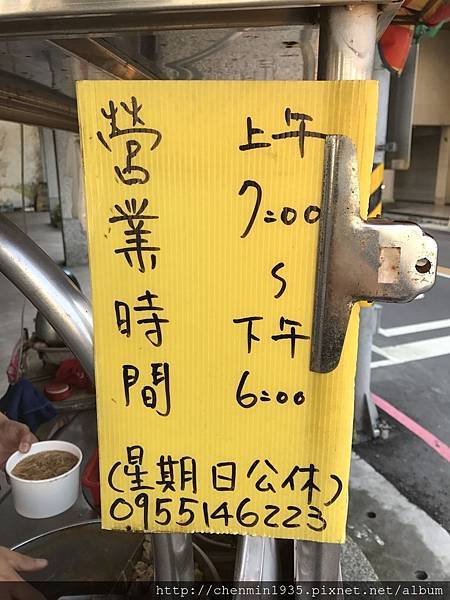 營業時間
上午
7:00
S
下午
6:00
(星期日公休)
0955146223
http://chenmin1935.pixnet.net/album